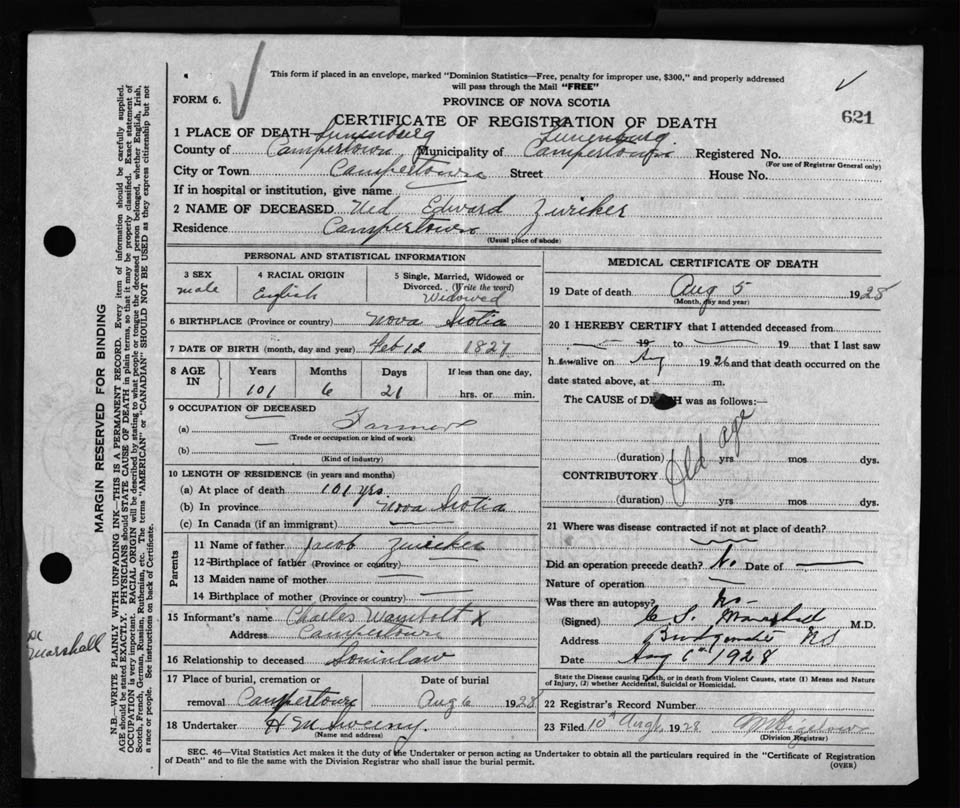 This form if placed in an envelope, marked "Dominion Statistics—Free, penalty for improper use, $300," and properly addressed
will pass through the Mail "FREE"
FORM 6.
PROVINCE OF NOVA SCOTIA
621
CERTIFICATE OF REGISTRATION OF DEATH
1 PLACE OF DEATH Lunenburg Lunenburg
County of Campertown Municipality of Campertown Registered No.
(For use of Registrar General only)
City or Town Campertown Street House No.
If in hospital or institution, give name
2 NAME OF DECEASED Ned Edward Zwicker
Residence Campertown
(Usual place of abode)
PERSONAL AND STATISTICAL INFORMATION
3 SEX 4 RACIAL ORIGIN 5 Single, Married, Widowed or
Divorced. (Write the word)
male English Widowed
6 BIRTHPLACE (Province or country) Nova Scotia
7 DATE OF BIRTH (month, day and year) Feb 12 1827
8 AGE IN Years Months Days If less than one day,
101 6 21 hrs. or min.
9 OCCUPATION OF DECEASED
(a) Farmer
(Trade or occupation or kind of work)
(b) —
(Kind of industry)
10 LENGTH OF RESIDENCE (in years and months)
(a) At place of death 101 yrs.
(b) In province Nova Scotia
(c) In Canada (if an immigrant)
Parents
11 Name of father Jacob Zwicker
12 Birthplace of father (Province or country)
13 Maiden name of mother
14 Birthplace of mother (Province or country)
15 Informant's name Charles Wambolt X
Address Campertown
16 Relationship to deceased Soninlaw
17 Place of burial, cremation or Date of burial
removal Campertown Aug 6 1928
18 Undertaker H M Sweeny.
(Name and address)
MEDICAL CERTIFICATE OF DEATH
19 Date of death Aug 5 1928
(Month, day and year)
20 I HEREBY CERTIFY that I attended deceased from
19 to 19 that I last saw
h alive on Aug 1926 and that death occurred on the
date stated above, at m.
The CAUSE of DEATH was as follows:—
Old age
(duration) yrs mos dys.
CONTRIBUTORY
(duration) yrs mos dys.
21 Where was disease contracted if not at place of death?
Did an operation precede death? No Date of —
Nature of operation —
Was there an autopsy? No
(Signed) C S Marshall M.D.
Address Bridgewater NS
Date Aug 6th 1928
State the Disease causing Death, or in death from Violent Causes, state (1) Means and Nature
of Injury, (2) whether Accidental, Suicidal or Homicidal.
22 Registrar's Record Number
23 Filed 10th Aug 1928
(Division Registrar)
SEC. 46—Vital Statistics Act makes it the duty of the Undertaker or person acting as Undertaker to obtain all the particulars required in the "Certificate of Registration
of Death" and to file the same with the Division Registrar who shall issue the burial permit.
(OVER)
MARGIN RESERVED FOR BINDING
N.B.—WRITE PLAINLY WITH UNFADING INK—THIS IS A PERMANENT RECORD. Every item of information should be carefully supplied.
AGE should be stated EXACTLY. PHYSICIANS should STATE CAUSE OF DEATH in plain terms, so that it may be properly classified. Exact statement of
OCCUPATION is very important. RACIAL ORIGIN will be described by stating to what people or tongue the deceased person belonged, whether English, Irish,
Scotch, French, German, Russian, Ruthenian, etc. The terms "AMERICAN" or "CANADIAN" SHOULD NOT BE USED as they express citizenship but not
a race or people. See instructions on back of Certificate.
Marshall